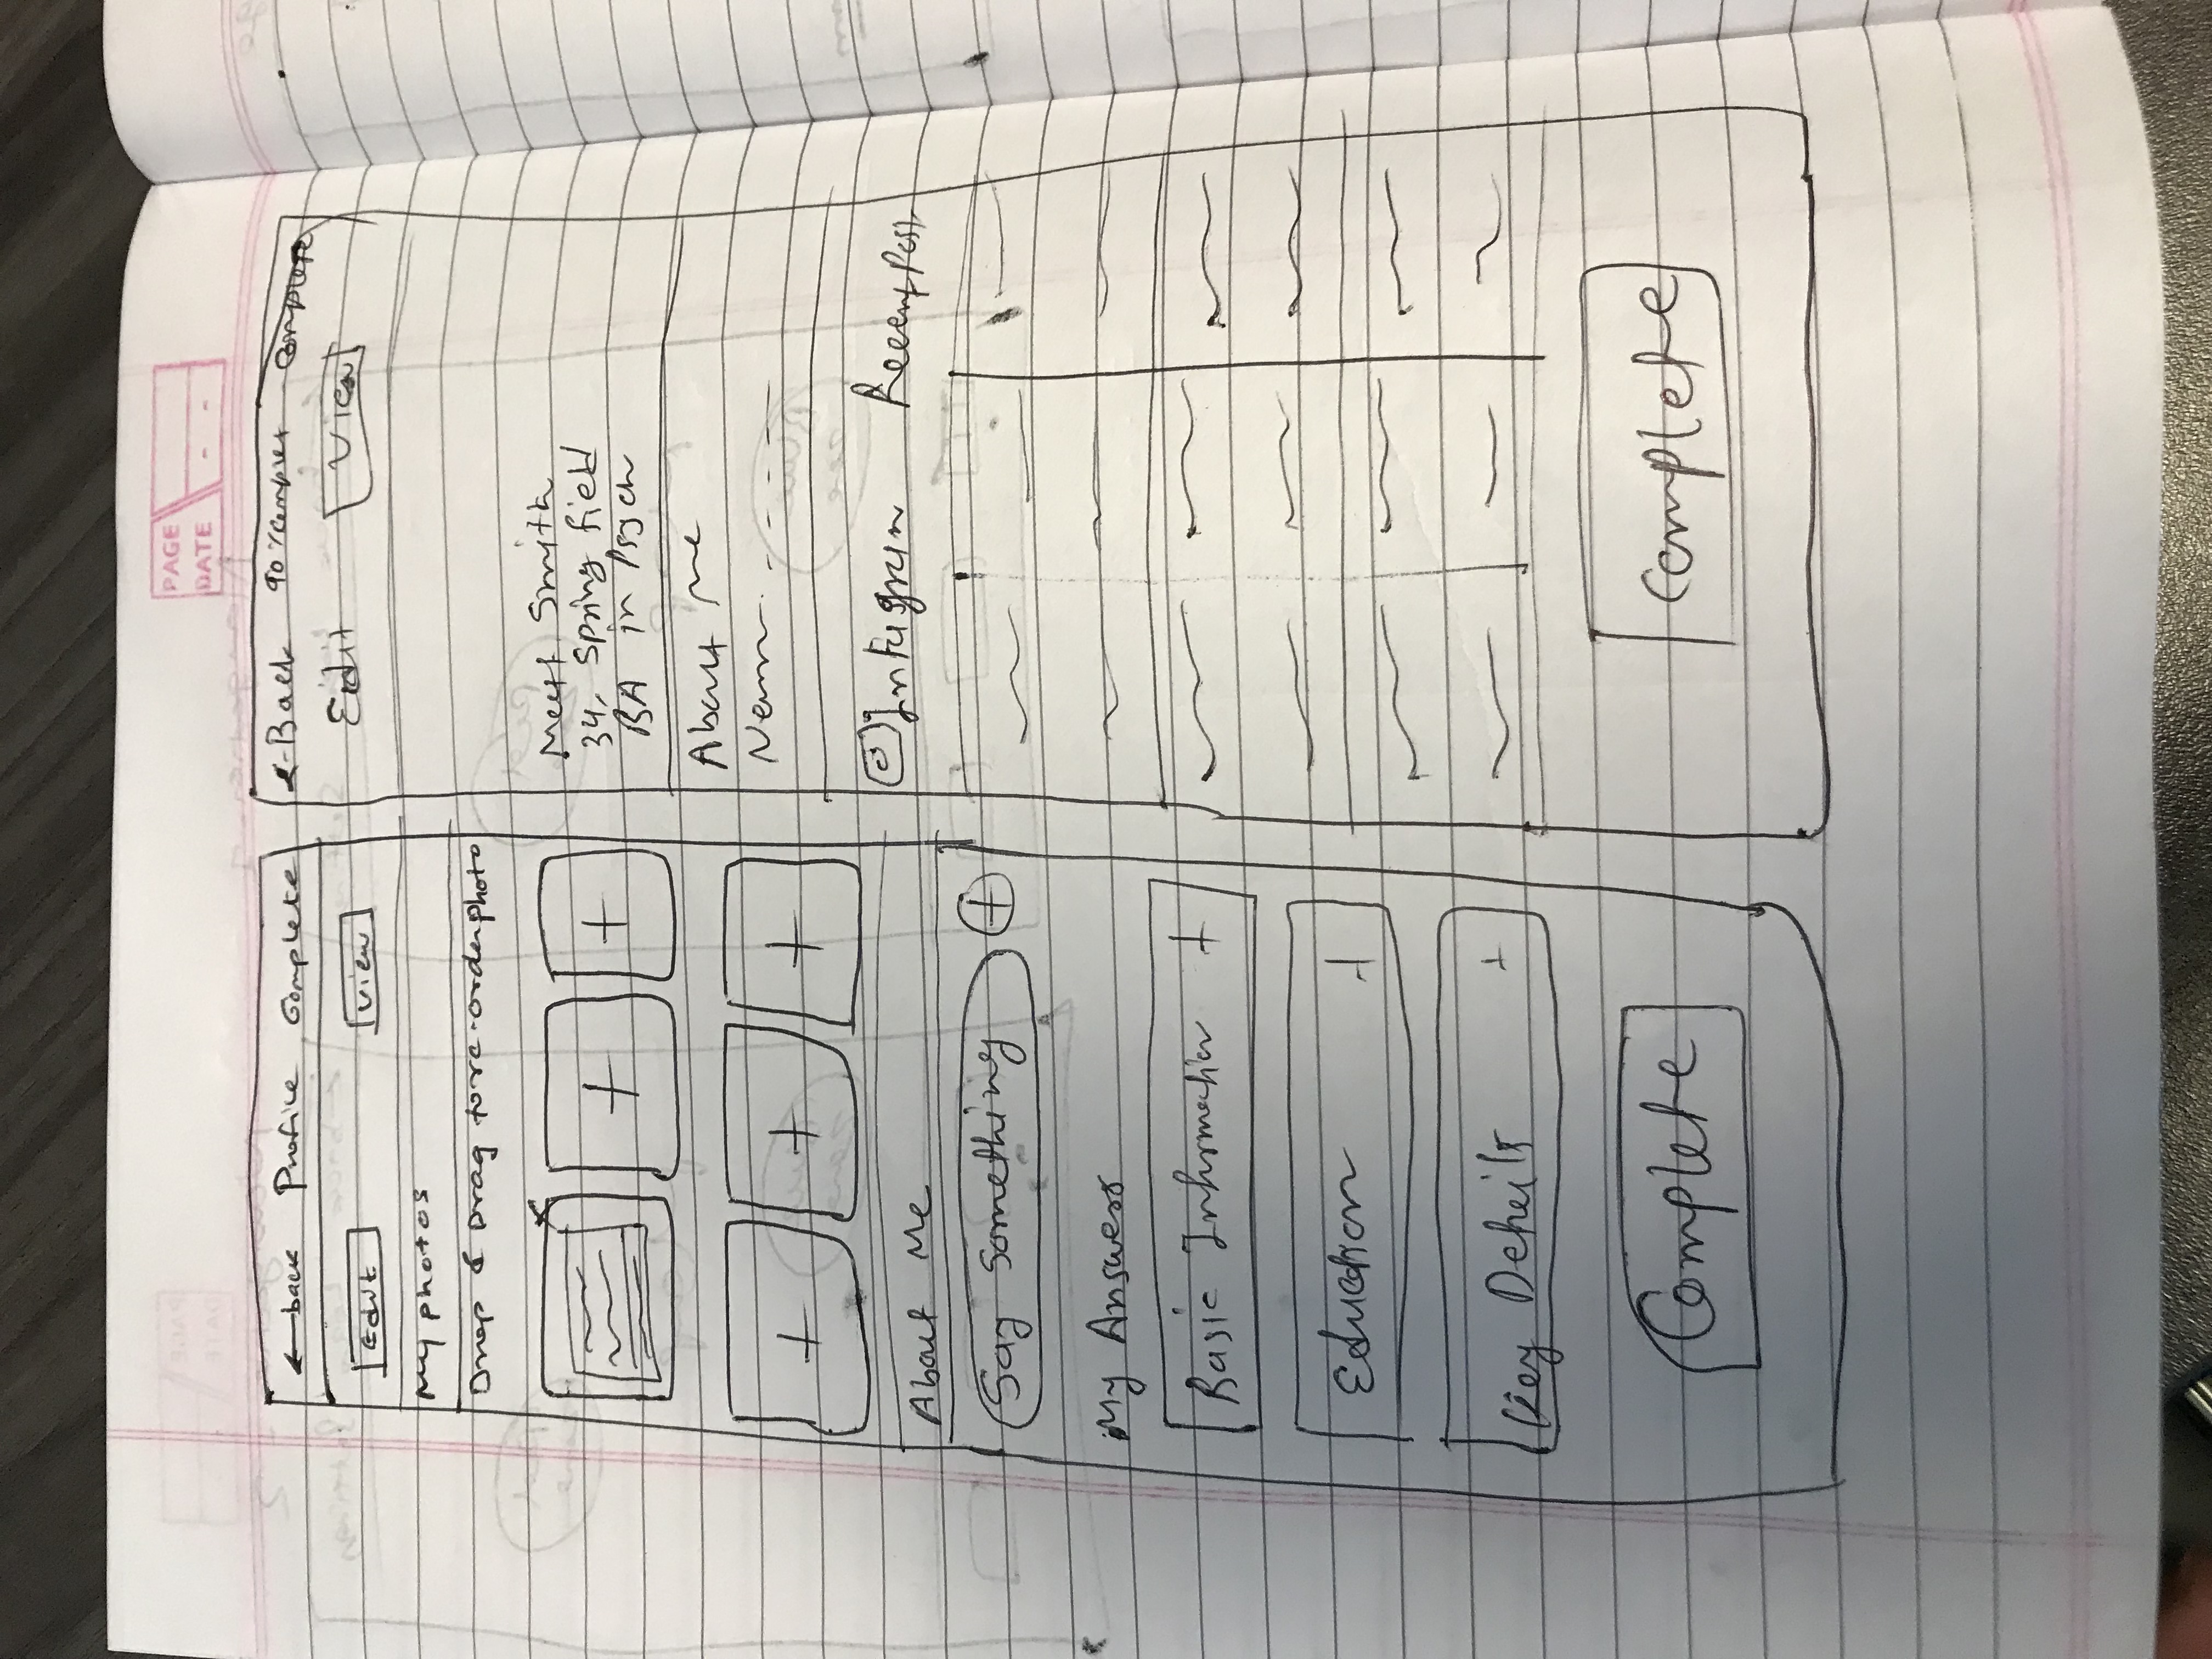 PAGE
DATE
← back Profile Complete
Edit View
My photos
Drop & Drag to re-order photo
x
+ +
+ + +
About Me
Say Something +
My Answers
Basic Information +
Education +
Key Details +
Complete
←Back 90% Complet Complete
Edit View
Smith
34, Spring field
BA in Psych
About me
Nam- - - - -
Instagram Recent Post
Complete